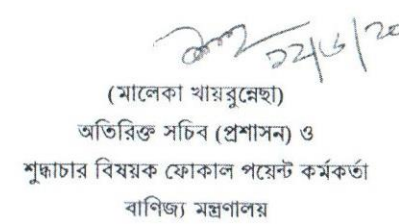 (মালেকা খায়রুন্নেছা)
অতিরিক্ত সচিব (প্রশাসন) ও
শুদ্ধাচার বিষয়ক ফোকাল পয়েন্ট কর্মকর্তা
বাণিজ্য মন্ত্রণালয়